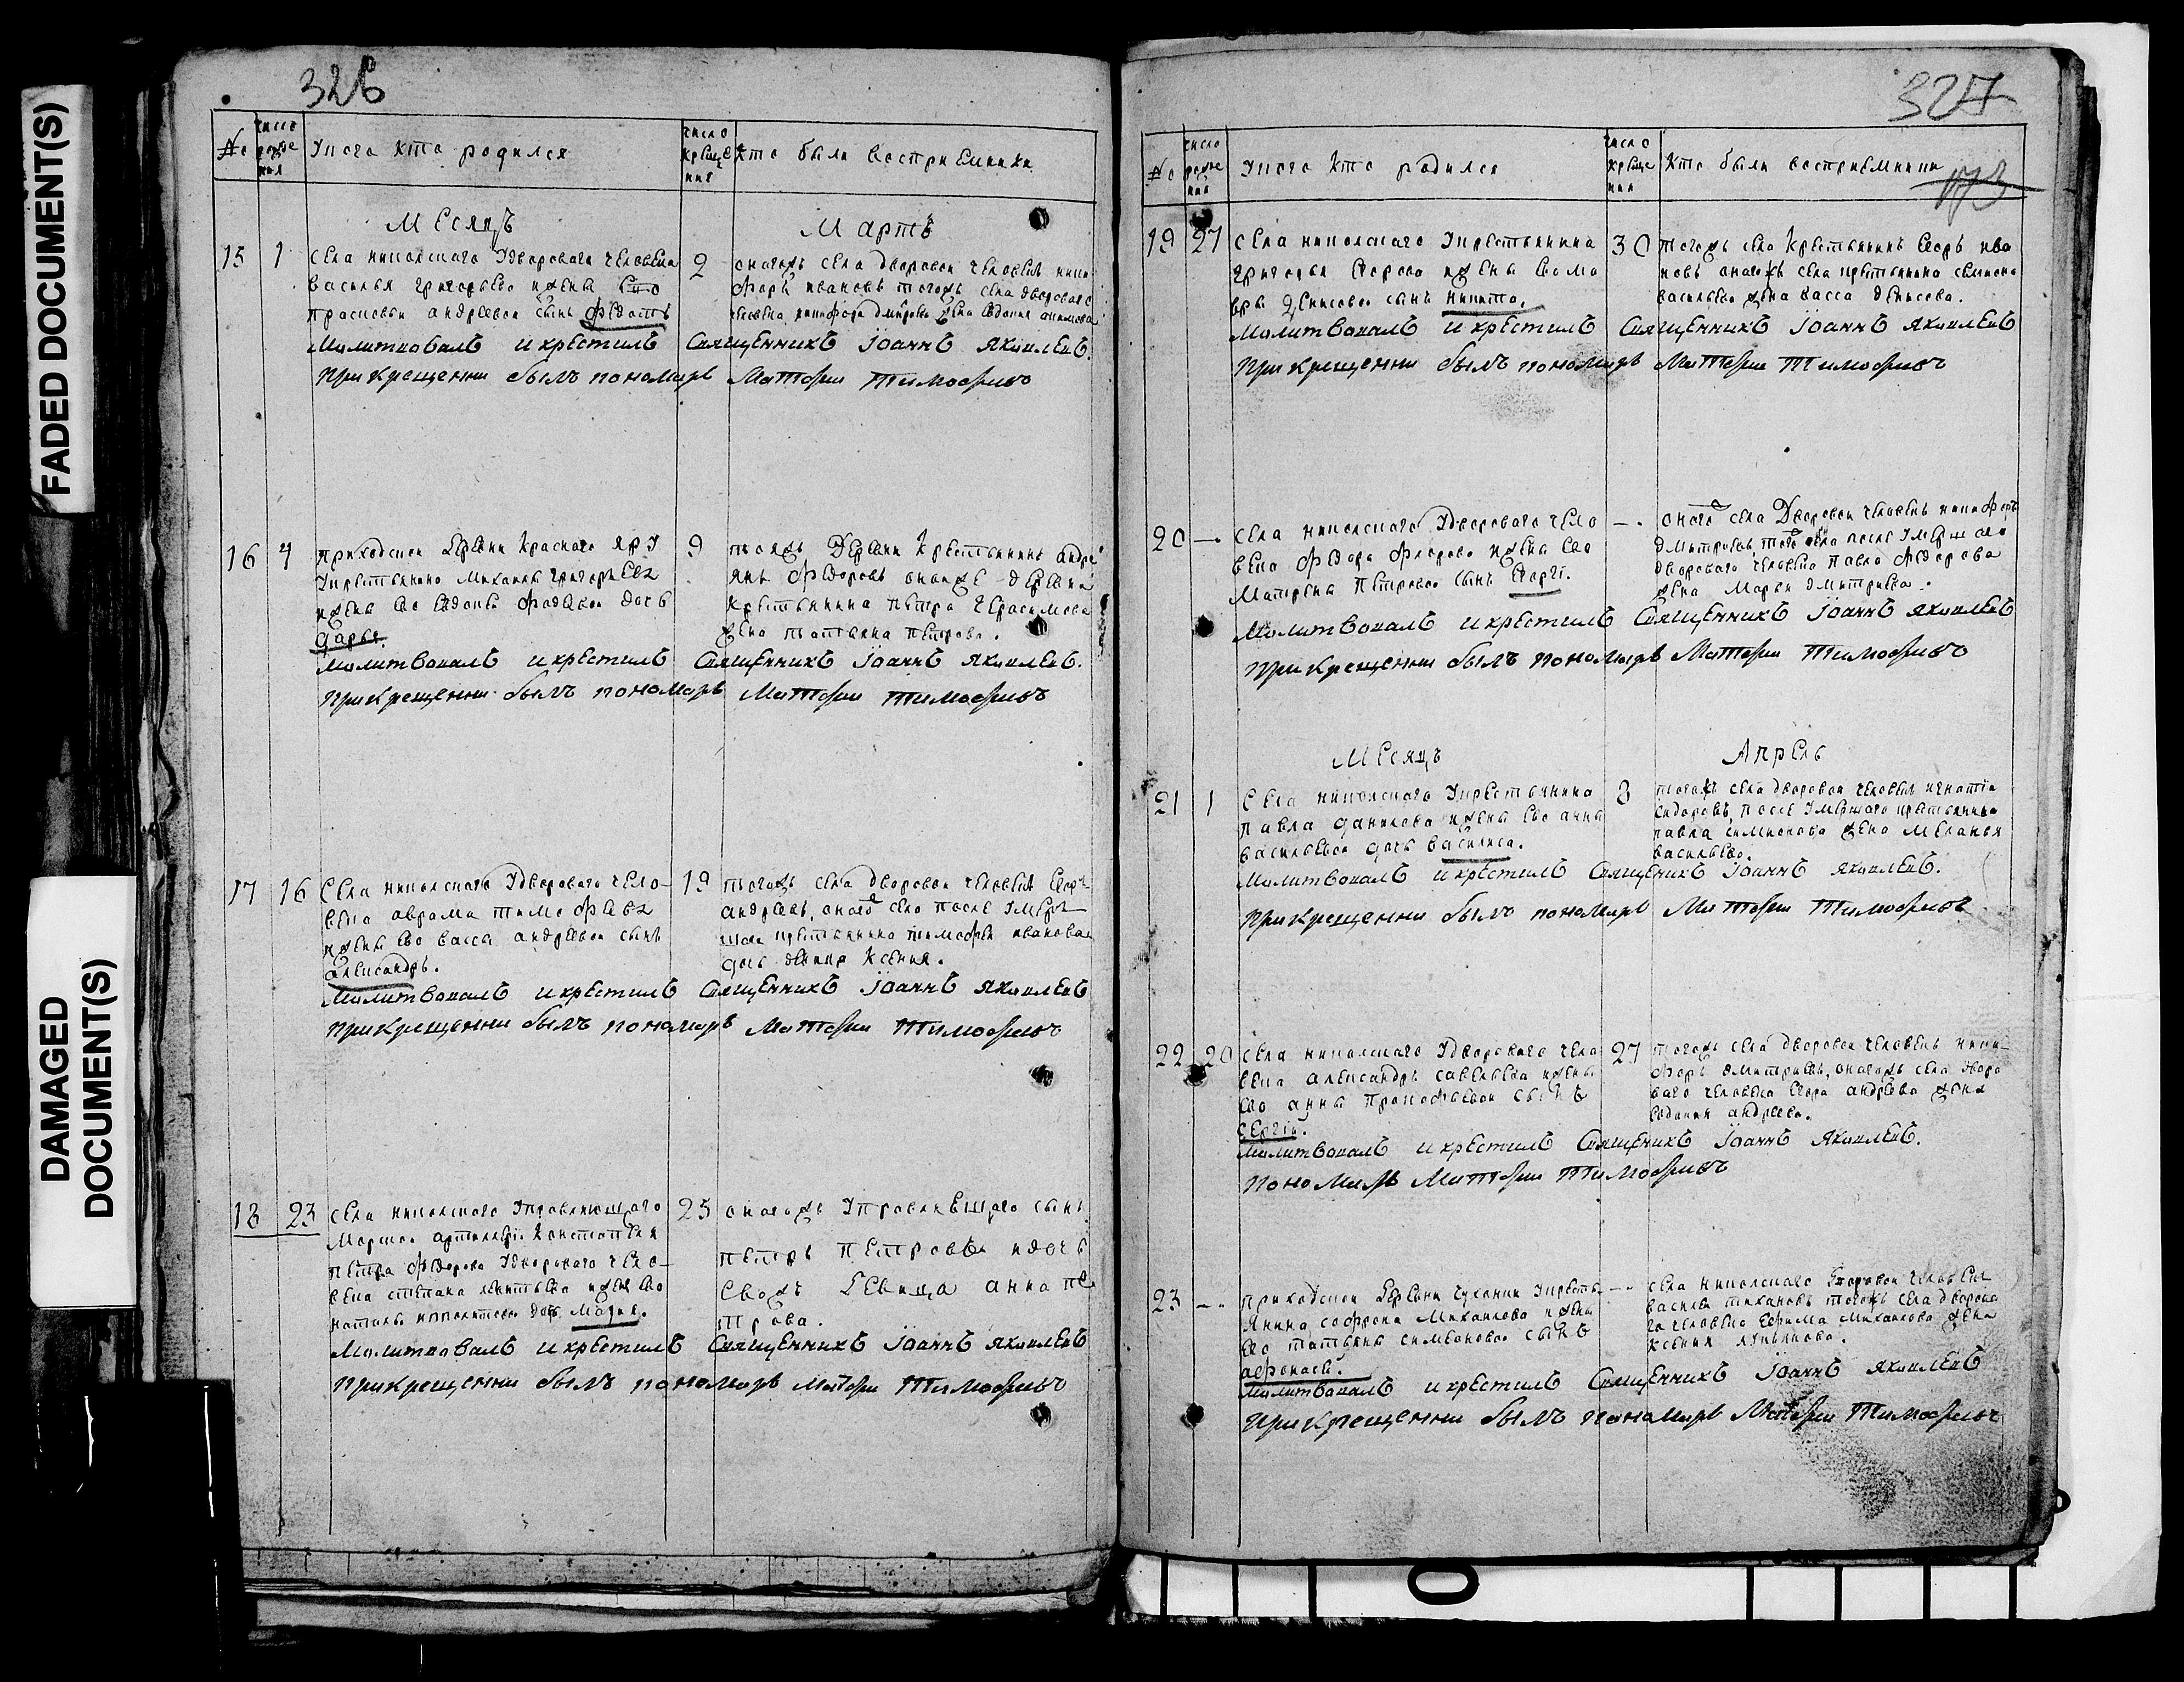 FADED DOCUMENT(S)
DAMAGED
DOCUMENT(S)
326
№
число рожде ния
У кого кто родился
число креще ния
кто были восприемники
Месяцъ
Мартъ
15
1
села никольскаго У двороваго человека
василья григорьева и жены Ево
прасковьи андреевои сынъ федотъ
2
оногожъ села дворовои человекъ ники
форъ ивановъ тогожъ села двороваго
человека никифора дмитрева жена Евдокия
молитвовалъ и крестилъ Священникъ Иоаннъ Яковлевъ.
при крещении былъ пономарь Матфеи Тимофеивъ
16
4
приходскои деревни Краснаго яру
У крестьянина михаилы григорьева
жены Ево Евдокеи фадеевои дочь
дарья.
9
тоежъ деревни Крестьянинъ андре
янъ Федоровъ оное же деревни
крестьянина петра герасимова
жена татьяна петрова.
молитвовалъ и крестилъ Священникъ Иоаннъ Яковлевъ.
при крещении былъ пономарь Матфеи Тимофеивъ
17
16
Села никольскаго У двороваго чело-
века аврама тимофеева
и жены Ево вассы андреевои сынъ
александръ.
19
тогожъ села дворовои человекъ Егоръ
андреевъ, оного села после Умерь
шаго крестьянина тимофея иванова
дочь девица Ксения.
молитвовалъ и крестилъ Священникъ Иоаннъ Яковлевъ
при крещении былъ пономарь Матфеи Тимофеивъ
18
23
села никольскаго Управляющаго
Морскои артиллери Констапеля
петра федорова У двороваго чело-
века степана леонтьева и жены Ево
натальи ипполитовои дочь Мария.
25
оногожъ Управляющаго сынъ
петръ петровъ и дочь
Евожъ девица анна пе
трова.
молитвовалъ и крестилъ Священникъ Иоаннъ Яковлевъ
при крещении былъ пономарь Матфеи Тимофеивъ
327
173
№
число рожде ния
У кого кто родился
число креще ния
кто были восприемники
19
27
села никольскаго У крестьянина
григорья Егорова и жены Ево ма
вры денисовои сынъ никита.
30
тогожъ села крестьянинъ Егоръ ива
новъ оногожъ села крестьянина семиона
васильева жена васса денисова.
молитвовалъ и крестилъ Священникъ Иоаннъ Яковлевъ
при крещении былъ пономарь Матфеи Тимофеивъ
20
—.
села никольскаго У двороваго чело
века федора флорова и жены Ево
матрены петровои сынъ Егорги.
—.
оного села Дворовои человекъ никифоръ
дмитриевъ, того села после Умершаго
двороваго человека павла федорова
жена Марья дмитриева.
молитвовалъ и крестилъ Священникъ Иоаннъ Яковлевъ
при крещении былъ пономарь Матфеи Тимофеивъ
Месяцъ
Апрель
21
1
Села никольскаго У крестьянина
павла данилова и жены Ево анны
васильевои дочь василиса.
3
тогожъ села дворовои человекъ игнатии
сидоровъ, после Умершаго крестьянина
павла симионова жена меланья
васильева.
молитвовалъ и крестилъ Священикъ Иоаннъ Яковлевъ.
при крещении былъ пономарь Матфеи Тимофеивъ
22
20
села никольскаго У двороваго чело
века александръ савельева и жены
Ево анны прокофьевои сынъ
сергiи.
27
тогожъ села дворовои человекъ ники
форъ дмитриевъ, оногожъ села дворо
ваго человека Егора андреева жена
Евдокия андреева.
молитвовалъ и крестилъ Священикъ Иоаннъ Яковлевъ.
пономарь Матфеи Тимофеивъ
23
—.
приходскои деревни чуханки У кресть-
янина софрона михаилова и жены
Ево татьяны симеоновои сынъ
афонасеи.
—.
села никольскаго дворовои человекъ
василеи тихановъ тогожъ села дворова
го человека Ефима михаилова жена
ксения лукьянова.
молитвовалъ и крестилъ Священникъ Иоаннъ Яковлевъ
при крещении былъ пономарь Матфеи Тимофеивъ
0